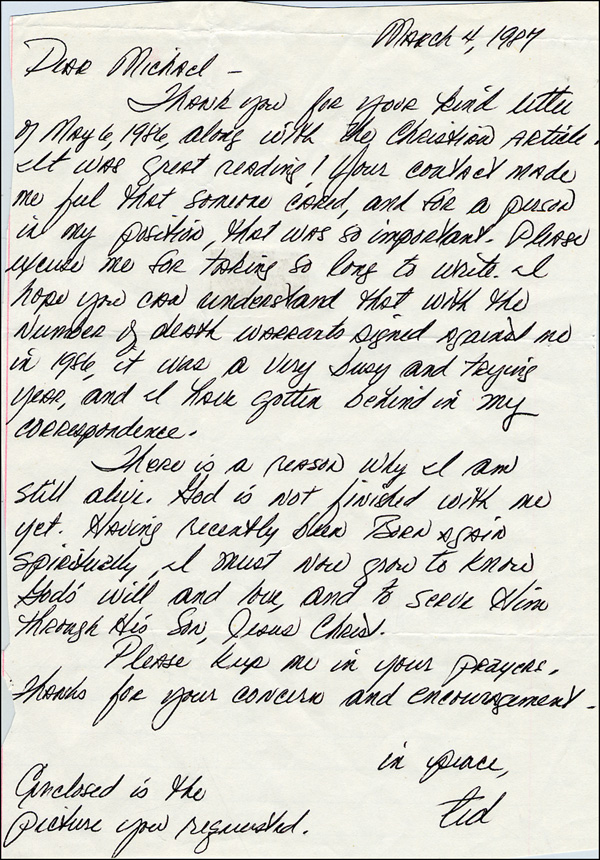 March 4, 1987
Dear Michael –
Thank you for your kind letter
of May 6, 1986, along with the Christian article.
It was great reading! Your contact made
me feel that someone cared, and for a person
in my position, that was so important. Please
excuse me for taking so long to write. I
hope you can understand that with the
number of death warrants signed against me
in 1986, it was a very busy and trying
year, and I have gotten behind in my
correspondence.
There is a reason why I am
still alive. God is not finished with me
yet. Having recently been Born again
spiritually, I must now grow to know
God's will and love, and to serve Him
through His Son, Jesus Christ.
Please keep me in your prayers.
Thanks for your concern and encouragement.
in peace,
ted
Enclosed is the
picture you requested.